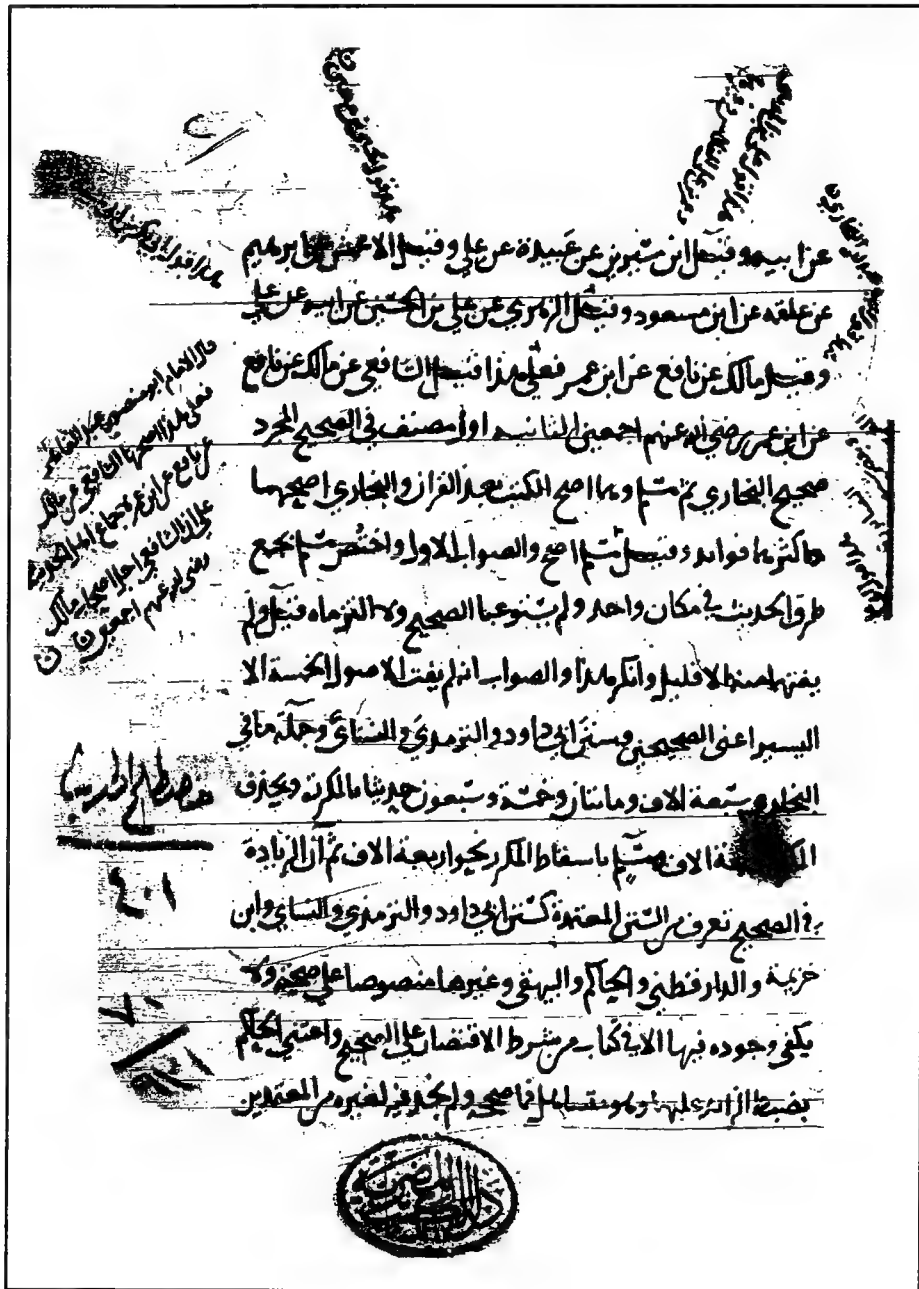 عن ابيه وقيل ابن سيرين عن عبيدة عن علي وقيل الاعمش عن ابرهيم
عن علقمه عن ابن مسعود وقيل الزهري عن علي بن الحسين عن ابيه عن علي
وقيل مالك عن نافع عن ابن عمر فعلى هذا قيل الشافعي عن مالك عن نافع
عن ابن عمر رضي الله عنهم اجمعين الثانيه اول مصنف في الصحيح المجرد
صحيح البخاري ثم مسلم وهما اصح الكتب بعد القران والبخاري اصحهما
واكثرهما فوايد وقيل مسلم اصح والصواب الاول واختص مسلم بجمع
طرق الحديث في مكان واحد ولم يستوعبا الصحيح ولا التزماه قيل ولم
يفتهما منه الا قليل وانكر هذا والصواب انه لم يفت الاصول الخمسة الا
اليسير اعني الصحيحين وسنن ابي داود والترمذي والنسائي وجملة ما في
البخاري سبعة الاف ومائتان وخمسة وسبعون حديثا بالمكررة وبحذف
الاف ومسلم باسقاط المكرر نحو اربعة الاف ثم ان الزيادة
في الصحيح تعرف من السنن المعتمدة كسنن ابي داود والترمذي والنساي وابن
خزيمة والدارقطني والحاكم والبيهقي وغيرها منصوصا على صحته ولا
يكفي وجوده فيها الا في كتاب من شرط الاقتصار على الصحيح واعتنى الحاكم
بضبط الزائد عليهما وهو متساهل فما صححه ولم نجد فيه لغيره من المعتمدين
قال الامام ابو منصور عبد القاهر
فعلى هذا اصحها الشافعي عن مالك
عن نافع عن ابن عمر لاجماع اهل الحديث
على ان الشافعي اجل اصحاب مالك
رضي الله عنهم اجمعين
مصطلح الحديث
٤٠١
دار الكتب المصرية